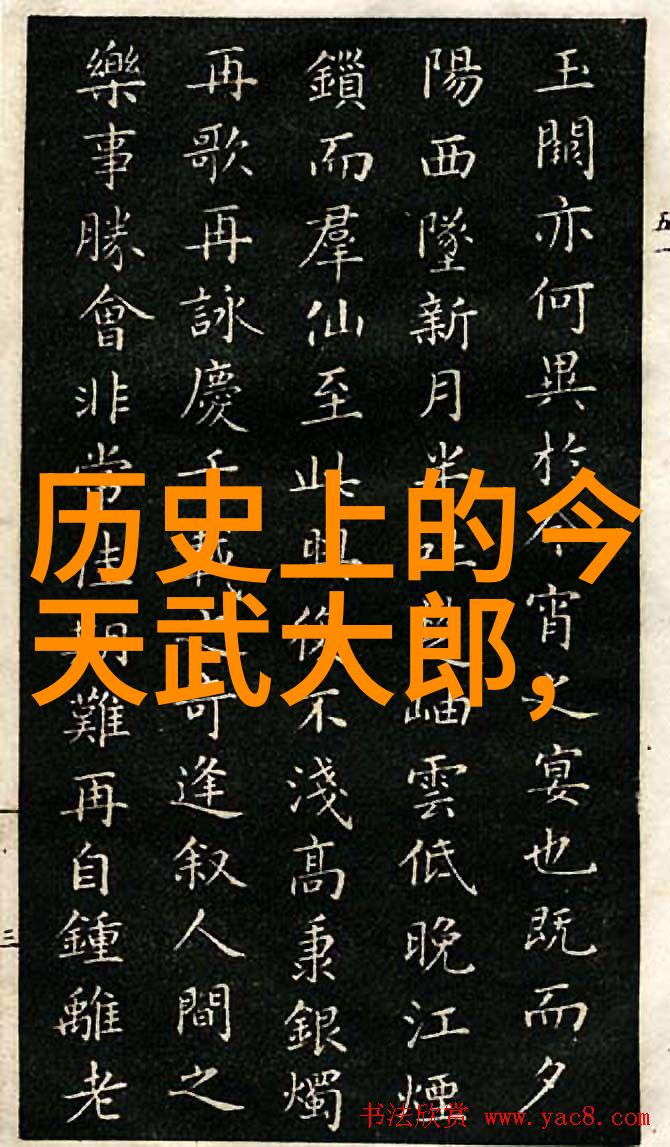 玉闕亦何異於今宵之宴也既而夕
陽西墜新月半吐岫雲低晚江煙
鎖而羣仙至此興復不淺高秉銀燭
再歌再詠慶千載可逢叙人間之
樂事勝會非常佳期難再自鍾離老
历史上的今
天武大郎,
五
三
书法欣赏 www.yac8.com